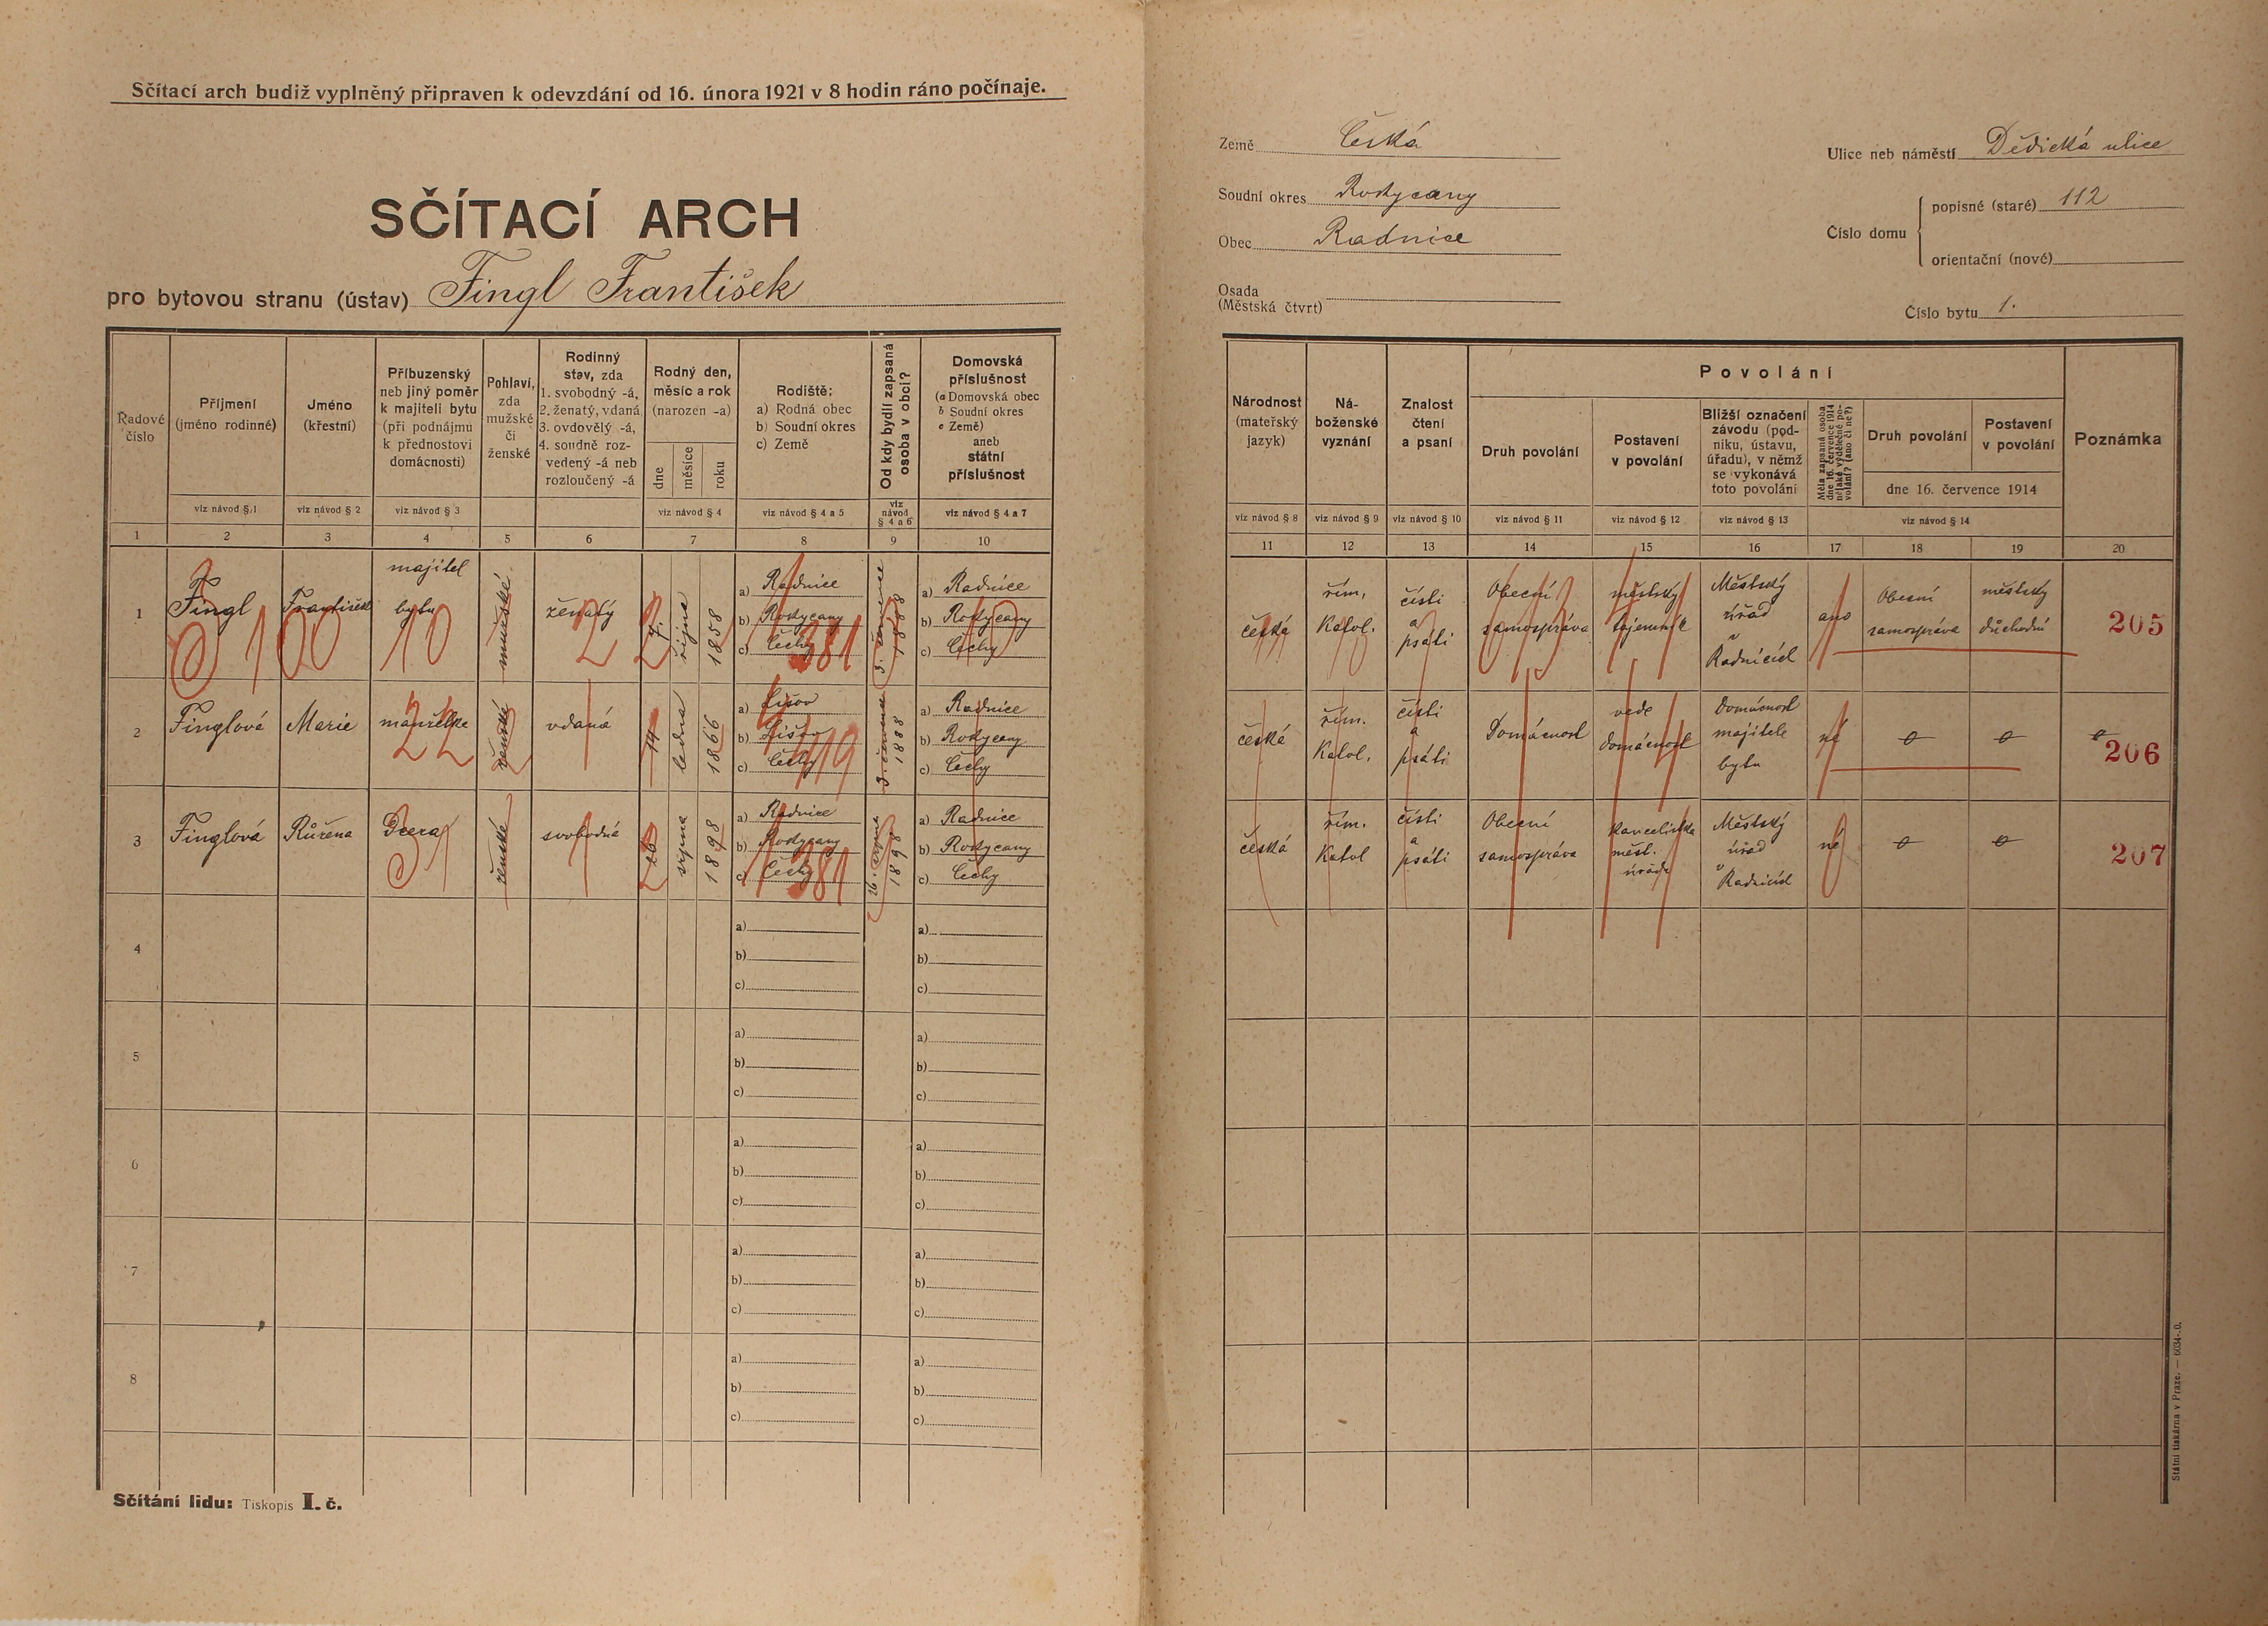 Sčítací arch budiž vyplněný připraven k odevzdání od 16. února 1921 v 8 hodin ráno počínaje.
SČÍTACÍ ARCH
pro bytovou stranu (ústav) Fingl František
Země Česká
Soudní okres Rokycany
Obec Radnice
Osada
(Městská čtvrt)
Ulice neb náměstí Dědická ulice
Číslo domu
popisné (staré) 112
orientační (nové)
Číslo bytu 1.
Řadové číslo
Příjmení (jméno rodinné)
Jméno (křestní)
Příbuzenský neb jiný poměr k majiteli bytu (při podnájmu k přednostovi domácnosti)
Pohlaví, zda mužské či ženské
Rodinný stav, zda 1. svobodný -á, 2. ženatý, vdaná, 3. ovdovělý -á, 4. soudně rozvedený -á neb rozloučený -á
Rodný den, měsíc a rok (narozen -a)
dne měsíce roku
Rodiště: a) Rodná obec b) Soudní okres c) Země
Od kdy bydlí zapsaná osoba v obci?
Domovská příslušnost (a Domovská obec b Soudní okres c Země) aneb státní příslušnost
viz návod § 1 viz návod § 2 viz návod § 3 viz návod § 4 viz návod § 4 a 5 viz návod § 4 a 6 viz návod § 4 a 7
1 2 3 4 5 6 7 8 9 10
Národnost (mateřský jazyk)
Náboženské vyznání
Znalost čtení a psaní
Povolání
Druh povolání
Postavení v povolání
Bližší označení závodu (podniku, ústavu, úřadu), v němž se vykonává toto povolání
Měla zapsaná osoba dne 16. července 1914 nějaké výdělečné povolání? (ano či ne?)
Druh povolání
Postavení v povolání
dne 16. července 1914
Poznámka
viz návod § 8 viz návod § 9 viz návod § 10 viz návod § 11 viz návod § 12 viz návod § 13 viz návod § 14
11 12 13 14 15 16 17 18 19 20
1 Fingl František majitel bytu mužské ženatý října 1858 a) Radnice b) Rokycany c) Čechy 1888 a) Radnice b) Rokycany c) Čechy
česká řím. Katol. čísti a psáti Obecní samospráva městský tajemník Městský úřad v Radnicích ano Obecní samospráva městský důchodní 205
2 Finglová Marie manželka ženská vdaná 14 ledna 1866 a) Lišov b) Lišov c) Čechy 3. července 1888 a) Radnice b) Rokycany c) Čechy
česká řím. Katol. čísti a psáti Domácnost vede domácnost Domácnost majitele bytu né 206
3 Finglová Růžena Dcera ženské svobodná srpna 1898 a) Radnice b) Rokycany c) Čechy 26. srpna 1898 a) Radnice b) Rokycany c) Čechy
česká řím. Katol čísti a psáti Obecní samospráva kancelistka měst. úřadu Městský úřad v Radnicích né 207
4 a) b) c) a) b) c)
5 a) b) c) a) b) c)
6 a) b) c) a) b) c)
7 a) b) c) a) b) c)
8 a) b) c) a) b) c)
Sčítání lidu: Tiskopis I. č.
Státní tiskárna v Praze. — 6034-.0.